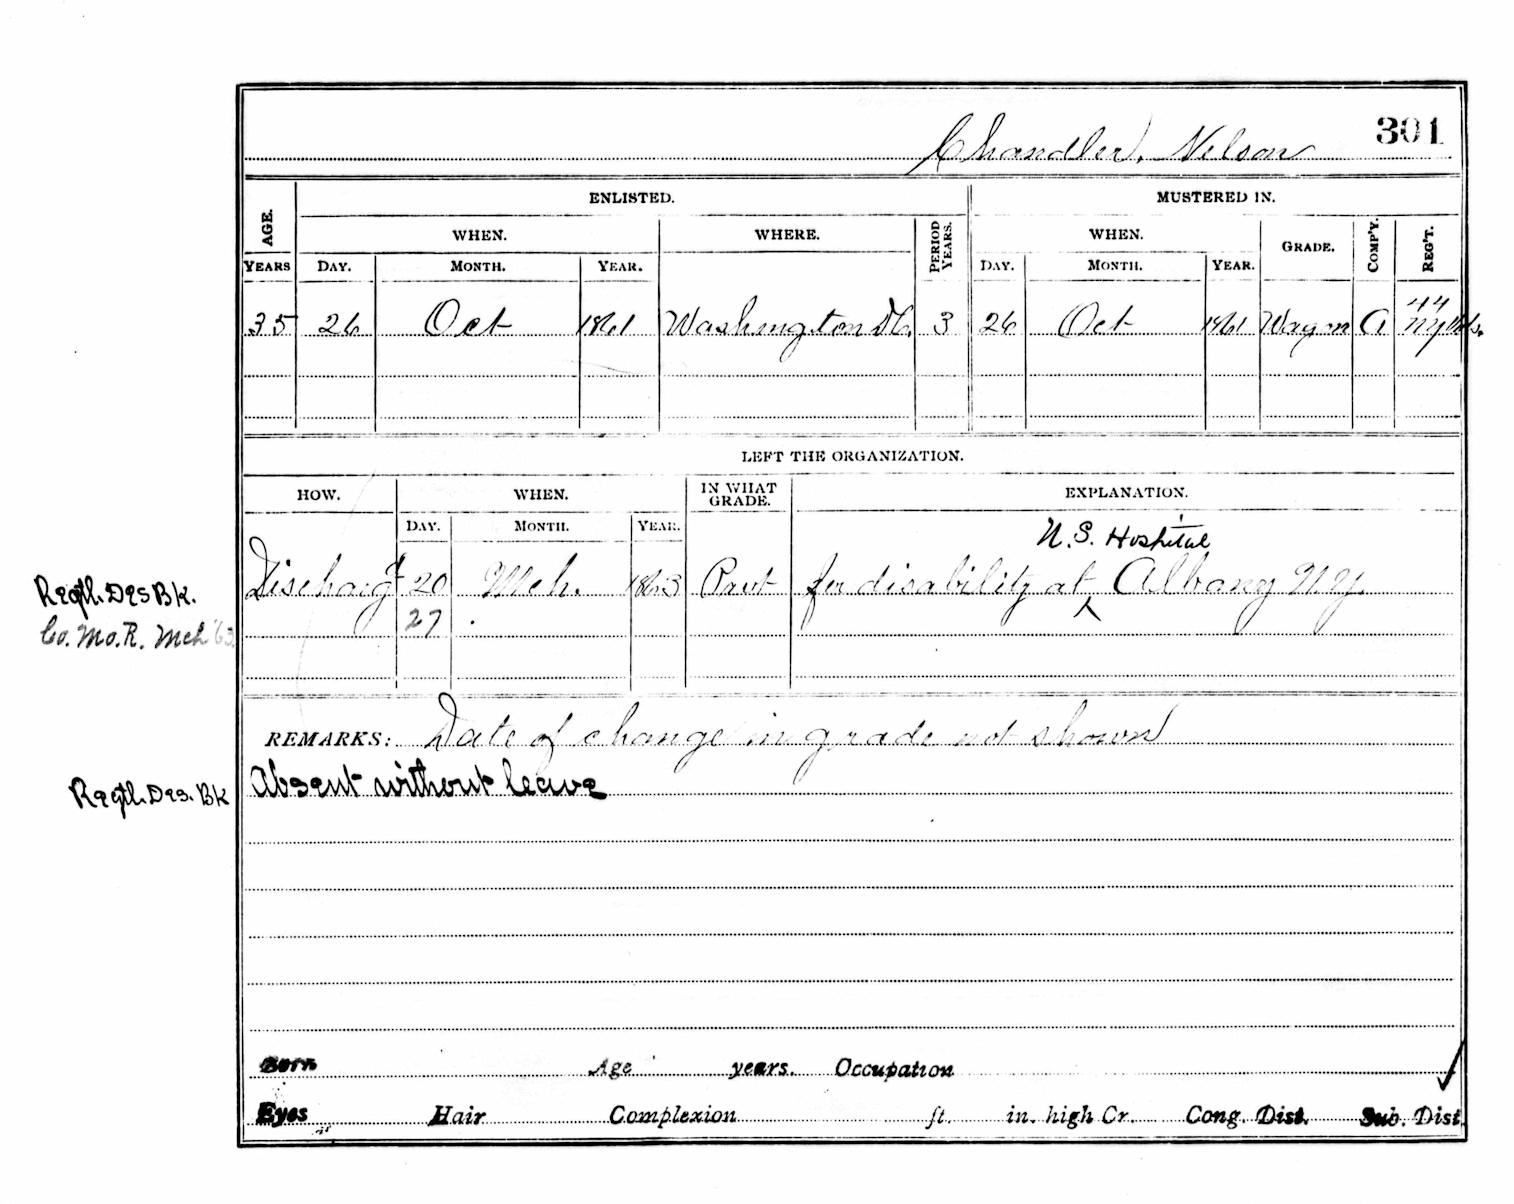 301
Chandler, Nelson
ENLISTED. MUSTERED IN.
AGE. WHEN. WHERE. PERIOD YEARS. WHEN. GRADE. COMP'Y. REG'T.
YEARS DAY. MONTH. YEAR. DAY. MONTH. YEAR.
44
35 26 Oct 1861 Washington D.C. 3 26 Oct 1861 Wagon A NY Vols.
LEFT THE ORGANIZATION.
HOW. WHEN. IN WHAT GRADE. EXPLANATION.
DAY. MONTH. YEAR.
U.S. Hospital
Regtl. Des Bk. Dischargd 20 Mch. 1863 Pavt for disability at ^ Albany N.Y.
Co. Mo. R. Mch '63 27
REMARKS: Date of change in grade not shown
Regtl. Des. Bk Absent without leave
Born Age years. Occupation
Eyes Hair Complexion ft. in. high Cr. Cong. Dist. Sub. Dist.